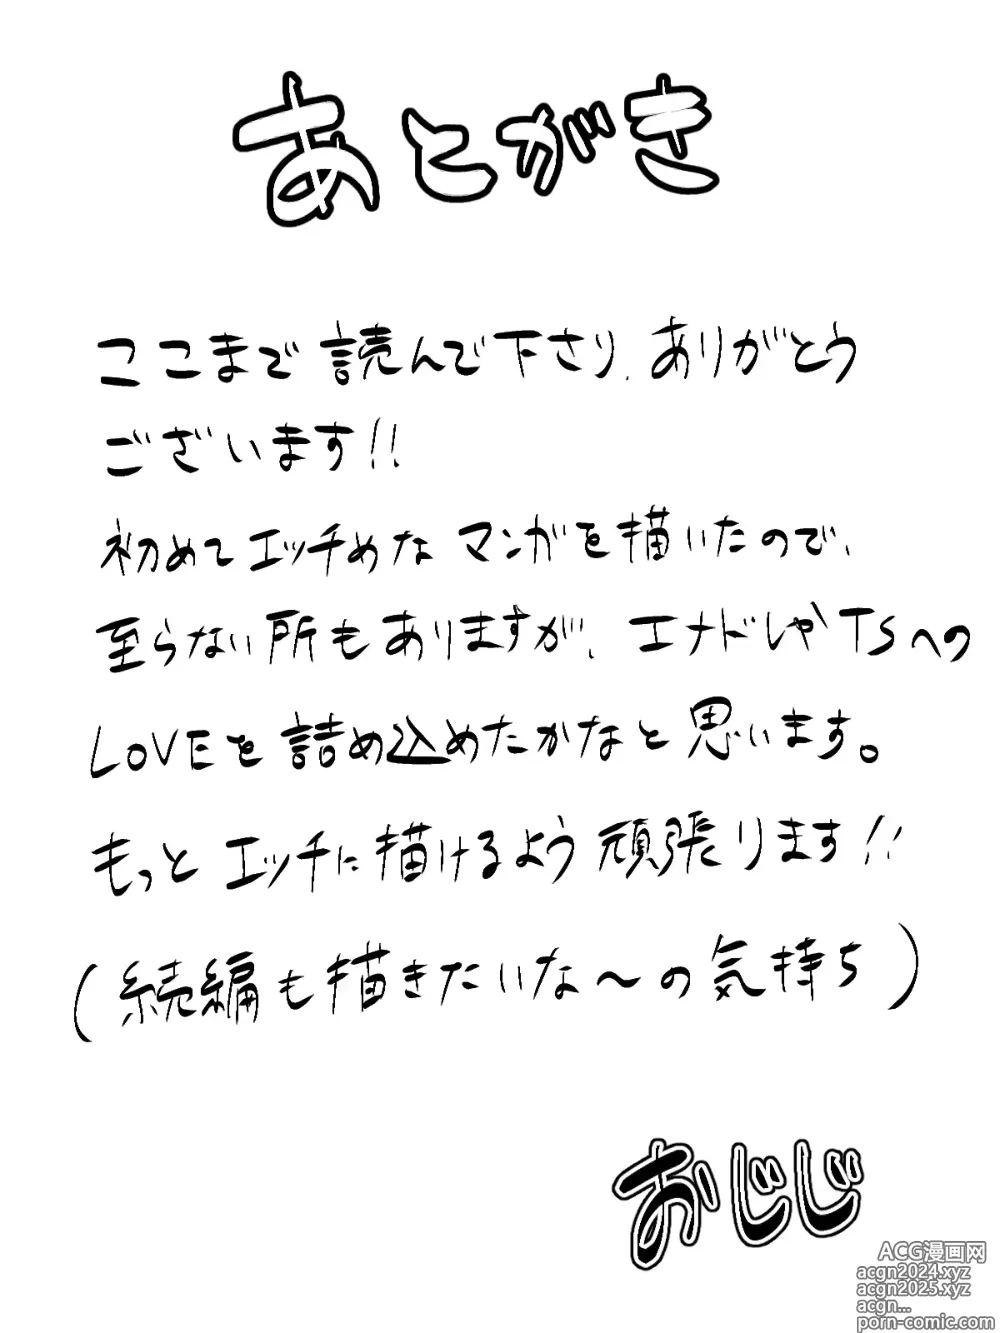 あとがき
ここまで読んで下さり、ありがとう
ございます!!
初めてエッチめなマンガを描いたので、
至らない所もありますが、エナドレやTSへの
LOVEを詰め込めたかなと思います。
もっとエッチに描けるよう頑張ります!!
(続編も描きたいな〜の気持ち)
おじじ
ACG漫画网
acgn2024.xyz
acgn2025.xyz
acgn...
porn-comic.com